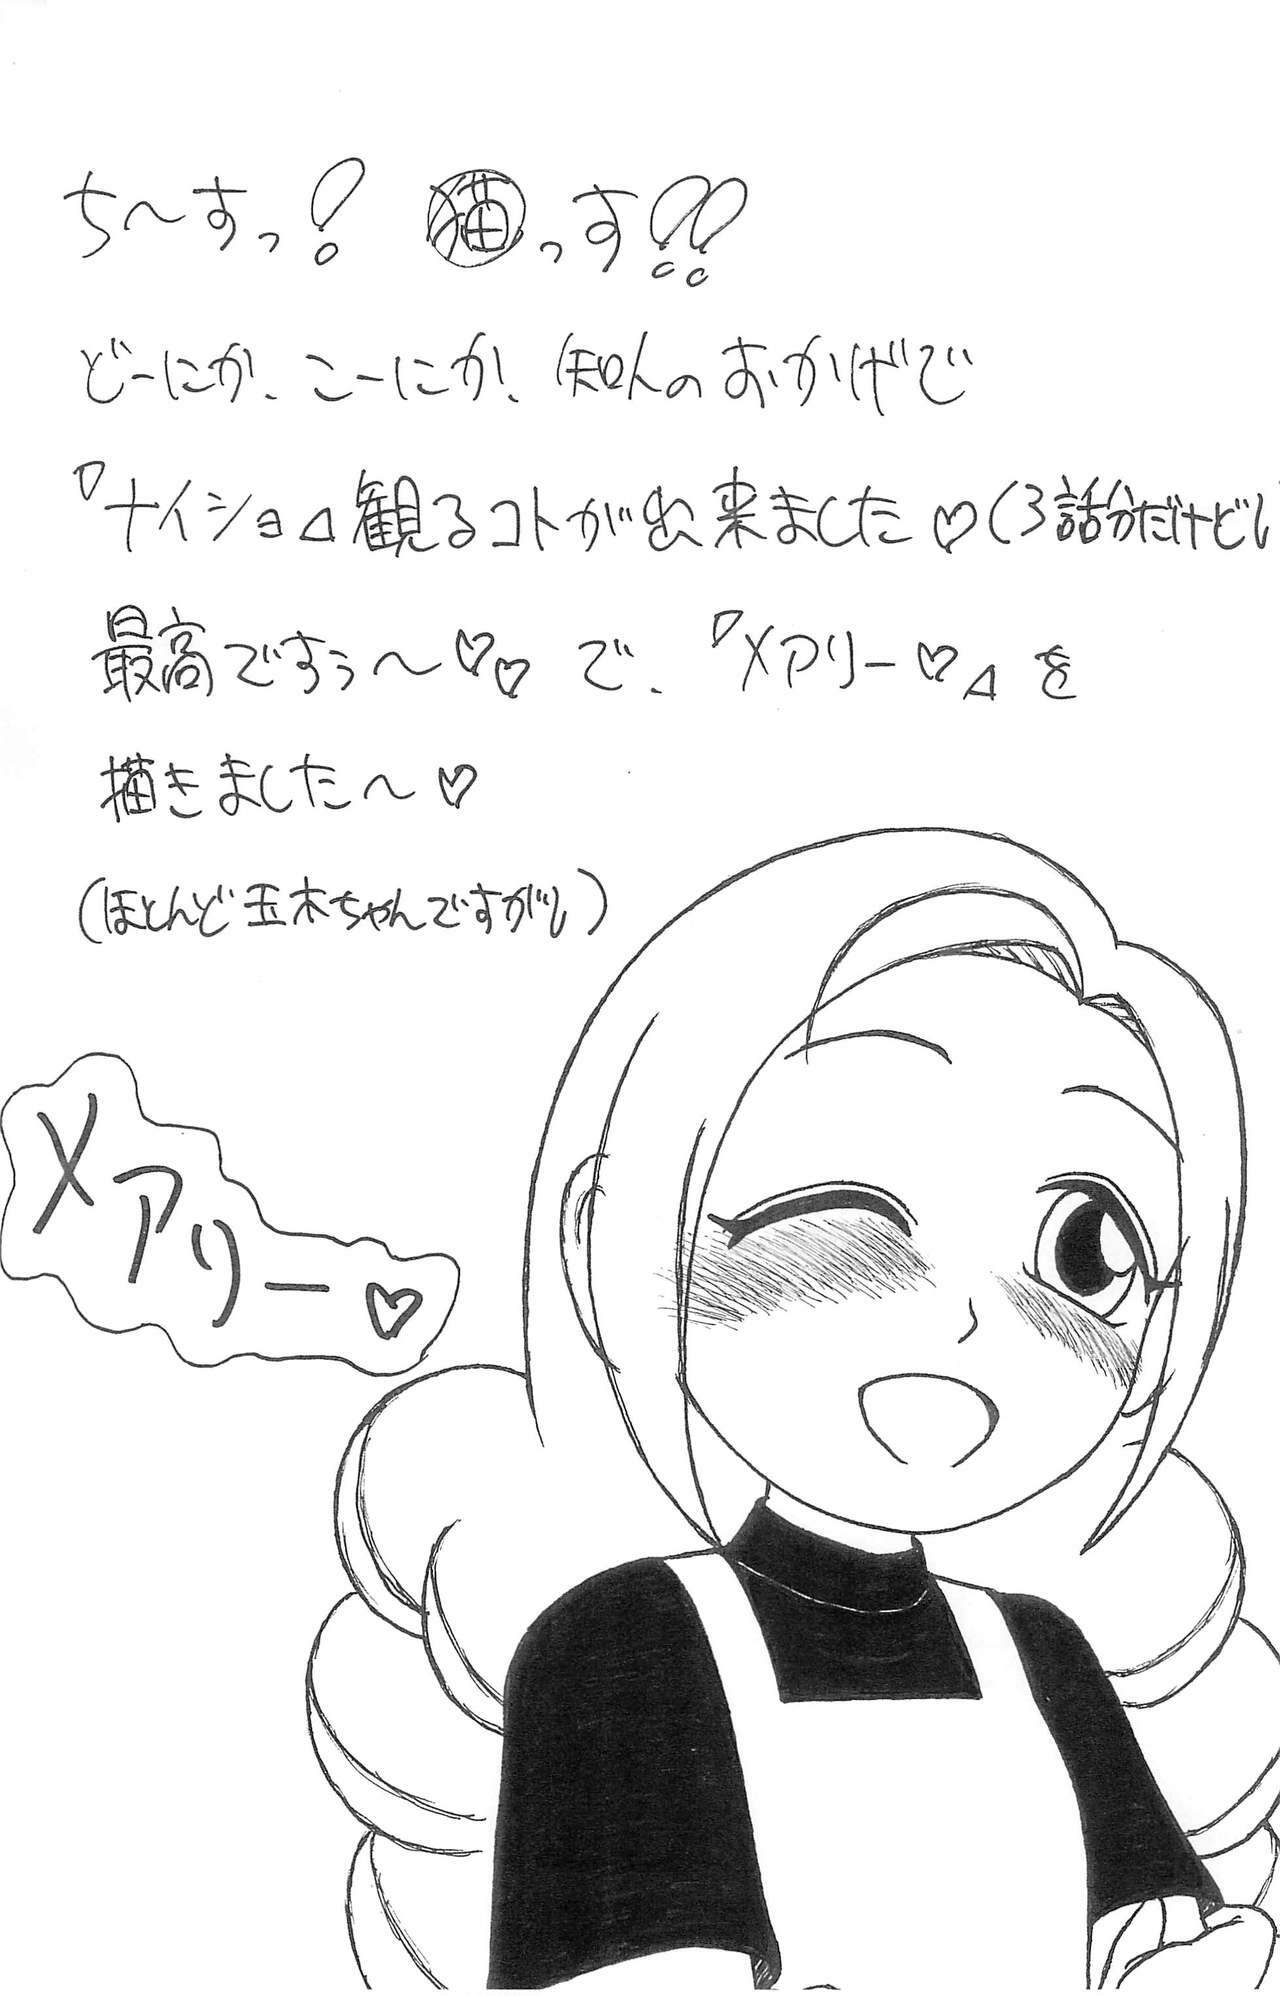 ち〜すっ! 猫っす!!
どーにか、こーにか、知人のおかげで
『ナイショ』観るコトが出来ました♡(3話分だけどし
最高ですぅ〜♡♡ で、『メアリー♡』を
描きました〜♡
(ほとんど玉木ちゃんですがし)
メアリー♡